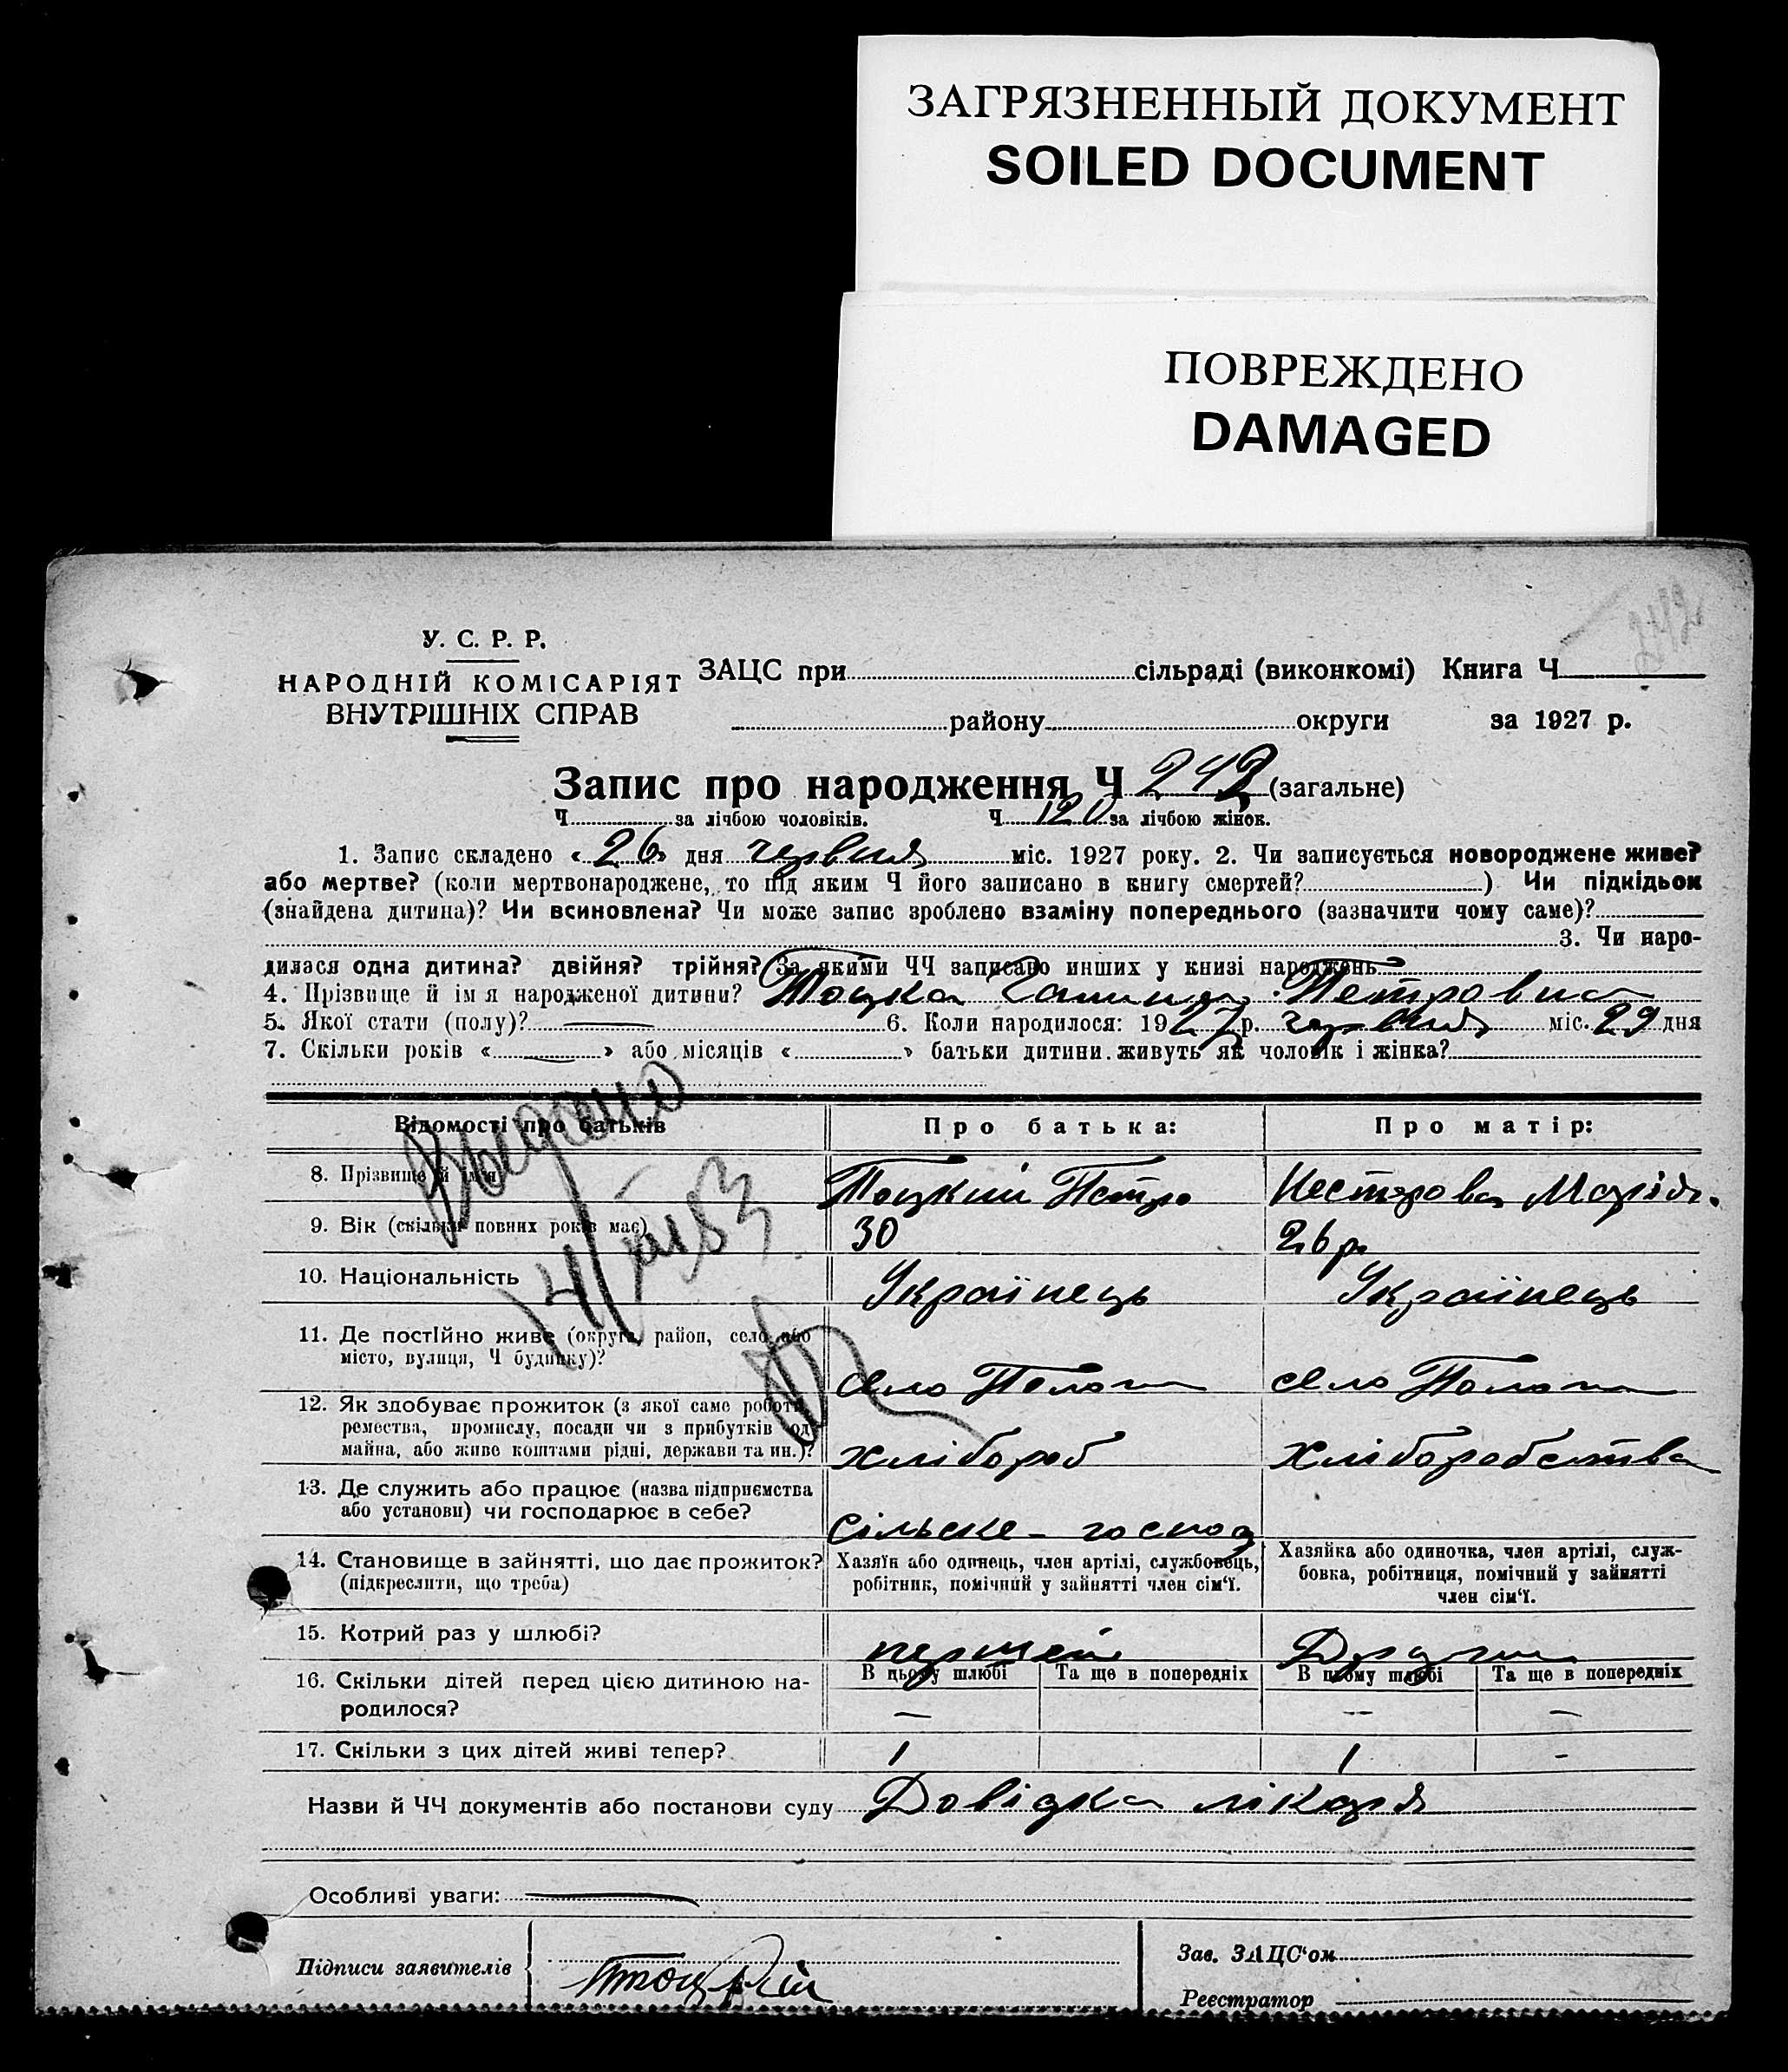 ЗАГРЯЗНЕННЫЙ ДОКУМЕНТ
SOILED DOCUMENT
ПОВРЕЖДЕНО
DAMAGED
242
У. С. Р. Р.
НАРОДНІЙ КОМІСАРІЯТ
ВНУТРІШНІХ СПРАВ
ЗАЦС при сільраді (виконкомі) Книга Ч
району округи за 1927 р.
Запис про народження Ч 242 (загальне)
Ч за лічбою чоловіків. Ч 120 за лічбою жінок.
1. Запис складено « 26 » дня червня міс. 1927 року. 2. Чи записується новороджене живе?
або мертве? (коли мертвонароджене, то під яким Ч його записано в книгу смертей? ) Чи підкідьок
(знайдена дитина)? Чи всиновлена? Чи може запис зроблено взаміну попереднього (зазначити чому саме)?
3. Чи наро-
дилася одна дитина? двійня? трійня? За якими ЧЧ записано инших у книзі народжень
4. Прізвище й імя народженої дитини? Тоцка Галина Петровна
5. Якої стати (полу)? — 6. Коли народилося: 1927 р. червня міс. 29 дня
7. Скільки років « » або місяців « » батьки дитини живуть як чоловік і жінка?
Відомості про батьків Про батька: Про матір:
8. Прізвище й імя Тоцкий Петро Нестерова Марія.
9. Вік (скільки повних років має) 30 26 р.
10. Національність Українець Українець
11. Де постійно живе (округа, район, село або
місто, вулиця, Ч будинку)?
село Пологи село Пологи
12. Як здобуває прожиток (з якої саме роботи
ремества, промислу, посади чи з прибутків од
майна, або живе коштами рідні, держави та ин.)?
хлібороб хліборобства
13. Де служить або працює (назва підприємства
або установи) чи господарює в себе?
Сільске - госпо
14. Становище в зайнятті, що дає прожиток?
(підкреслити, що треба)
Хазяїн або одинець, член артілі, службовець,
робітник, помічний у зайнятті член сім'ї.
Хазяйка або одиночка, член артілі, служ-
бовка, робітниця, помічний у зайнятті
член сім'ї.
15. Котрий раз у шлюбі? первшей Други
В цьому шлюбі Та ще в попередніх В цьому шлюбі Та ще в попередніх
16. Скільки дітей перед цією дитиною на-
родилося? — — —
17. Скільки з цих дітей живі тепер? 1 1 -
Видано
14/VIII 53
Назви й ЧЧ документів або постанови суду Довідка лікаря
Особливі уваги: —
Підписи заявителів Птоцкій
Зав. ЗАЦС'ом
Реєстратор